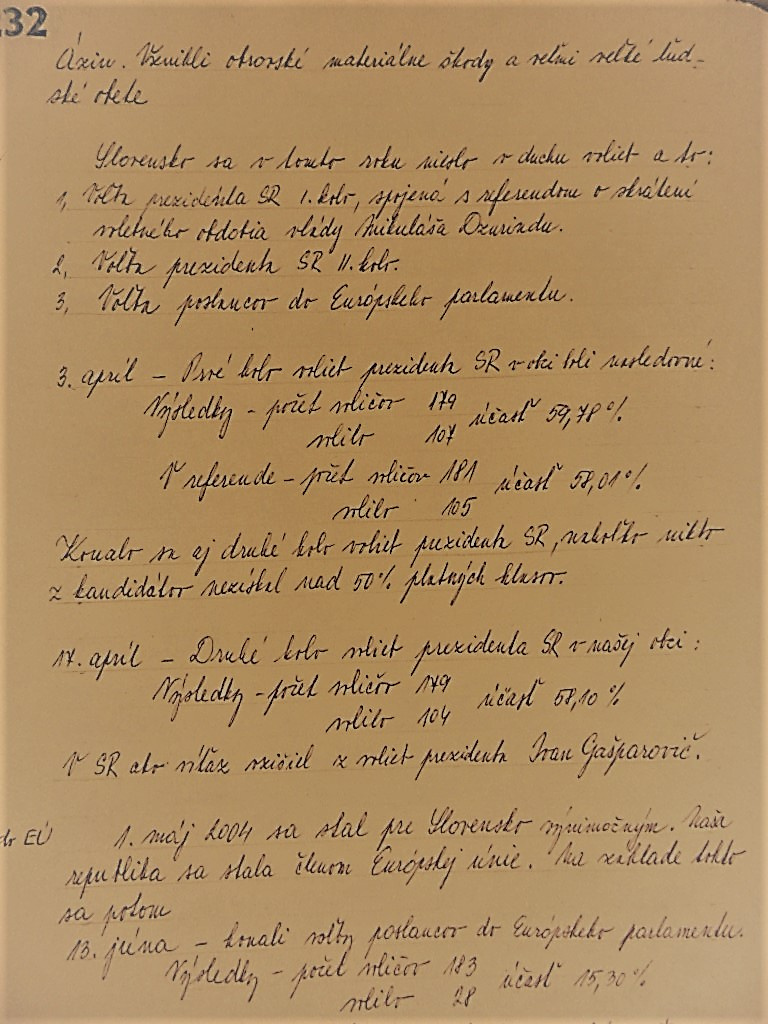 232
Áziu. Vznikli obrovské materiálne škody a veľmi veľké ľud-
ské obete
Slovensko sa v tomto roku nieslo v duchu volieb a to:
1, Voľba prezidenta SR I. kolo, spojená s referendom o skrátení
volebného obdobia vlády Mikuláša Dzurindu.
2, Voľba prezidenta SR II. kolo.
3, Voľba poslancov do Európskeho parlamentu.
3. apríl – Prvé kolo volieb prezidenta SR v obci boli nasledovné:
Výsledky – počet voličov 179 účasť 59,78 %
volilo 107
V referende – počet voličov 181 účasť 58,01 %
volilo 105
Konalo sa aj druhé kolo volieb prezidenta SR, nakoľko nikto
z kandidátov nezískal nad 50 % platných hlasov.
17. apríl – Druhé kolo volieb prezidenta SR v našej obci:
Výsledky – počet voličov 179 účasť 58,10 %
volilo 104
V SR ako víťaz vzišiel z volieb prezidenta Ivan Gašparovič.
do EÚ
1. máj 2004 sa stal pre Slovensko výnimočným. Naša
republika sa stala členom Európskej únie. Na základe tohto
sa potom
13. júna – konali voľby poslancov do Európskeho parlamentu.
Výsledky – počet voličov 183 účasť 15,30 %
volilo 28